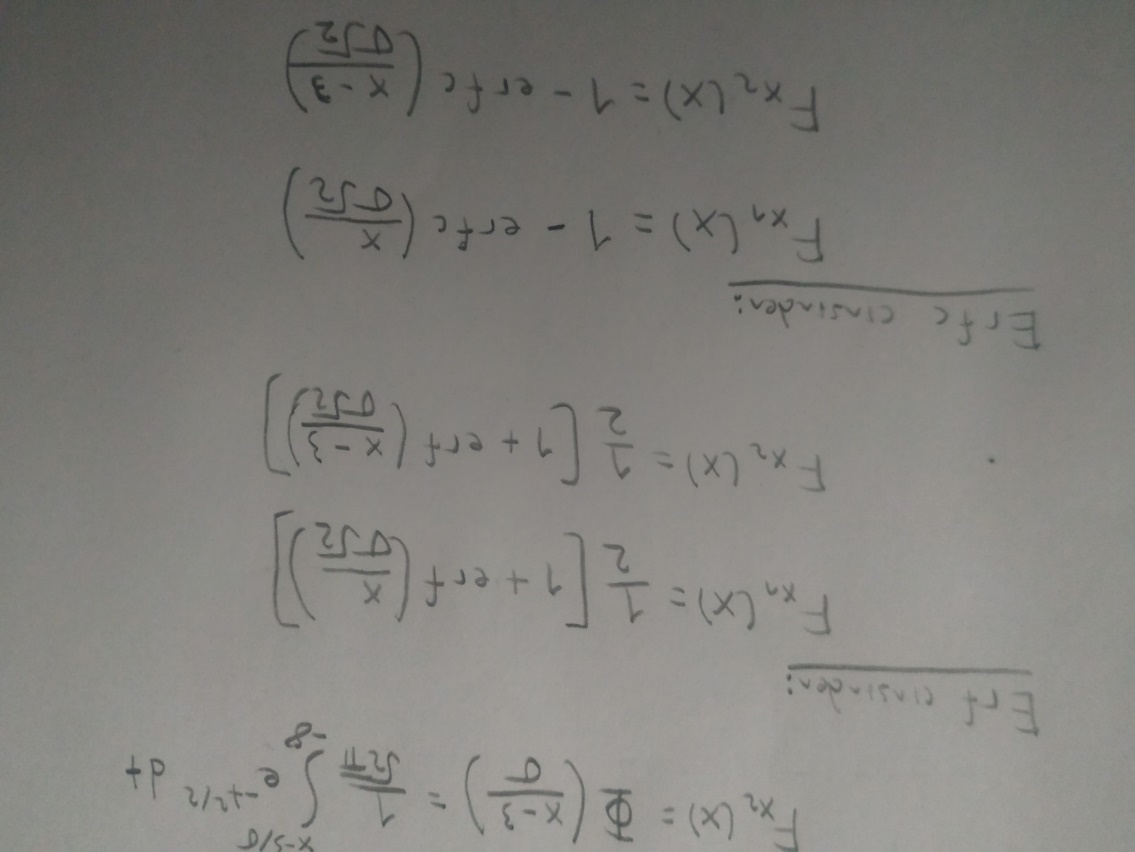 F_{x_2}(x) = Φ((x-3)/σ) = 1/√2π ∫_{-∞}^{x-3/σ} e^{-t^2/2} dt
Erf cinsinden:
F_{x_1}(x) = 1/2 [1 + erf (x/(σ√2))]
F_{x_2}(x) = 1/2 [1 + erf ((x-3)/(σ√2))]
Erfc cinsinden:
F_{x_1}(x) = 1 - erfc (x/(σ√2))
F_{x_2}(x) = 1 - erfc ((x-3)/(σ√2))